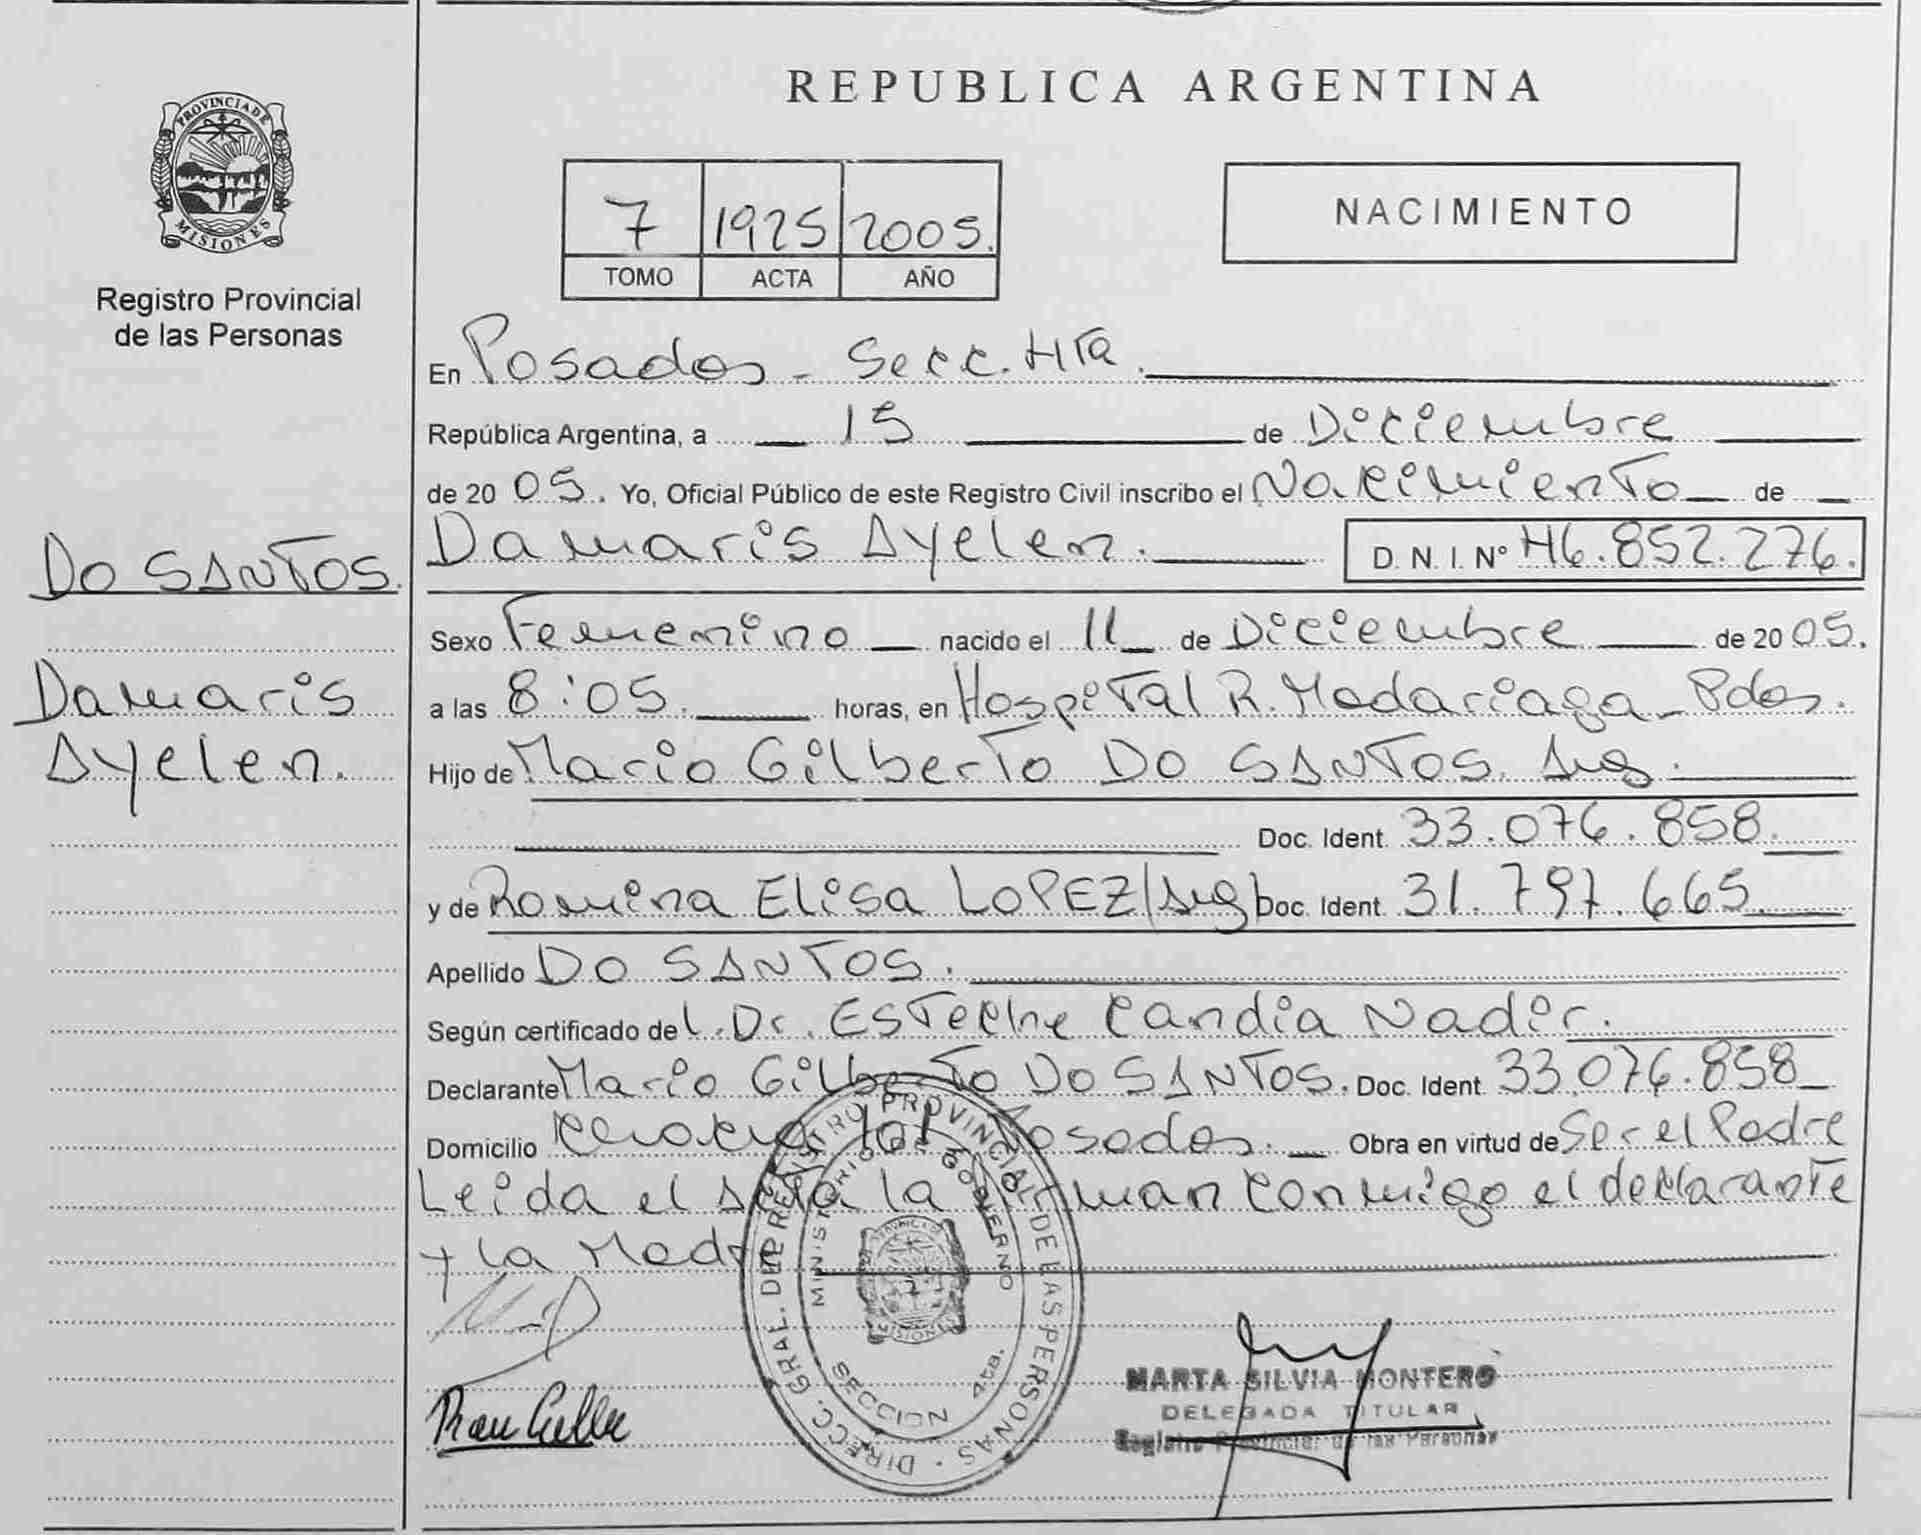 REPUBLICA ARGENTINA
PROVINCIA DE MISIONES
Registro Provincial
de las Personas
7 1925 2005.
TOMO ACTA AÑO
NACIMIENTO
En Posadas - Secc. 4ta.
República Argentina, a 15 de Diciembre
de 2005. Yo, Oficial Público de este Registro Civil inscribo el Nacimiento de
Damaris Ayelen. D. N. I. Nº 46.852.276.
DO SANTOS.
Damaris
Ayelen.
Sexo Femenino nacido el 11 de Diciembre de 2005.
a las 8:05. horas, en Hospital R. Madariaga - Pdas.
Hijo de Mario Gilberto DO SANTOS. Arg.
Doc. Ident. 33.076.858.
y de Romina Elisa LOPEZ/Arg Doc. Ident. 31.797.665.
Apellido DO SANTOS.
Según certificado del. Dr. Esteche Candia Nadir.
Declarante Mario Gilberto DO SANTOS. Doc. Ident. 33.076.858
Domicilio 101 Posadas. Obra en virtud de Ser el Padre
Leida el Acta la firman conmigo el declarante
y la Madre
DIRECC. GRAL. DEL REGISTRO PROVINCIAL DE LAS PERSONAS
MINISTERIO DE GOBIERNO
SECCION 4ta.
MARTA SILVIA MONTERO
DELEGADA TITULAR
Registro Provincial de las Personas